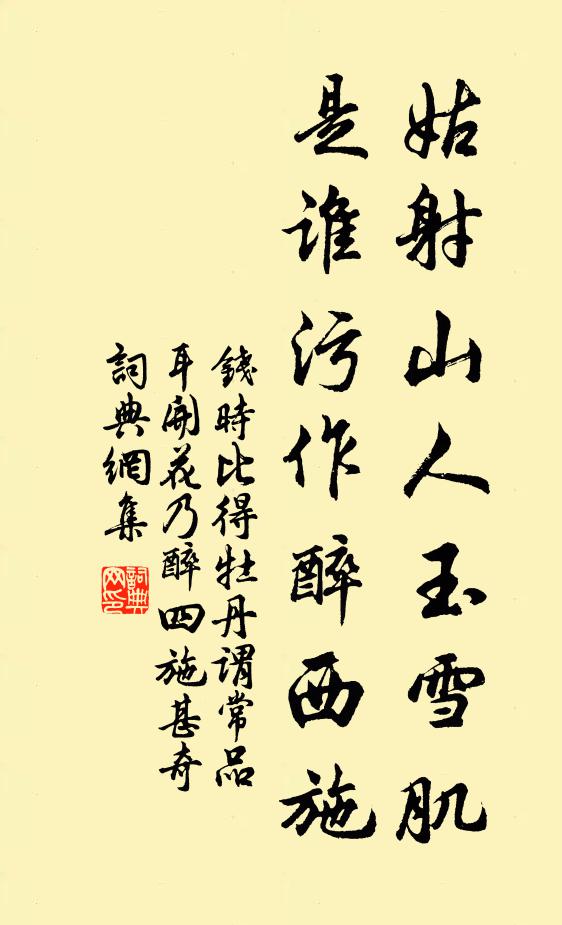 姑射山人玉雪肌
是誰污作醉西施
錢時比得牡丹謂常品
耳開花乃醉四施甚奇
詞典網集
詞典
網印